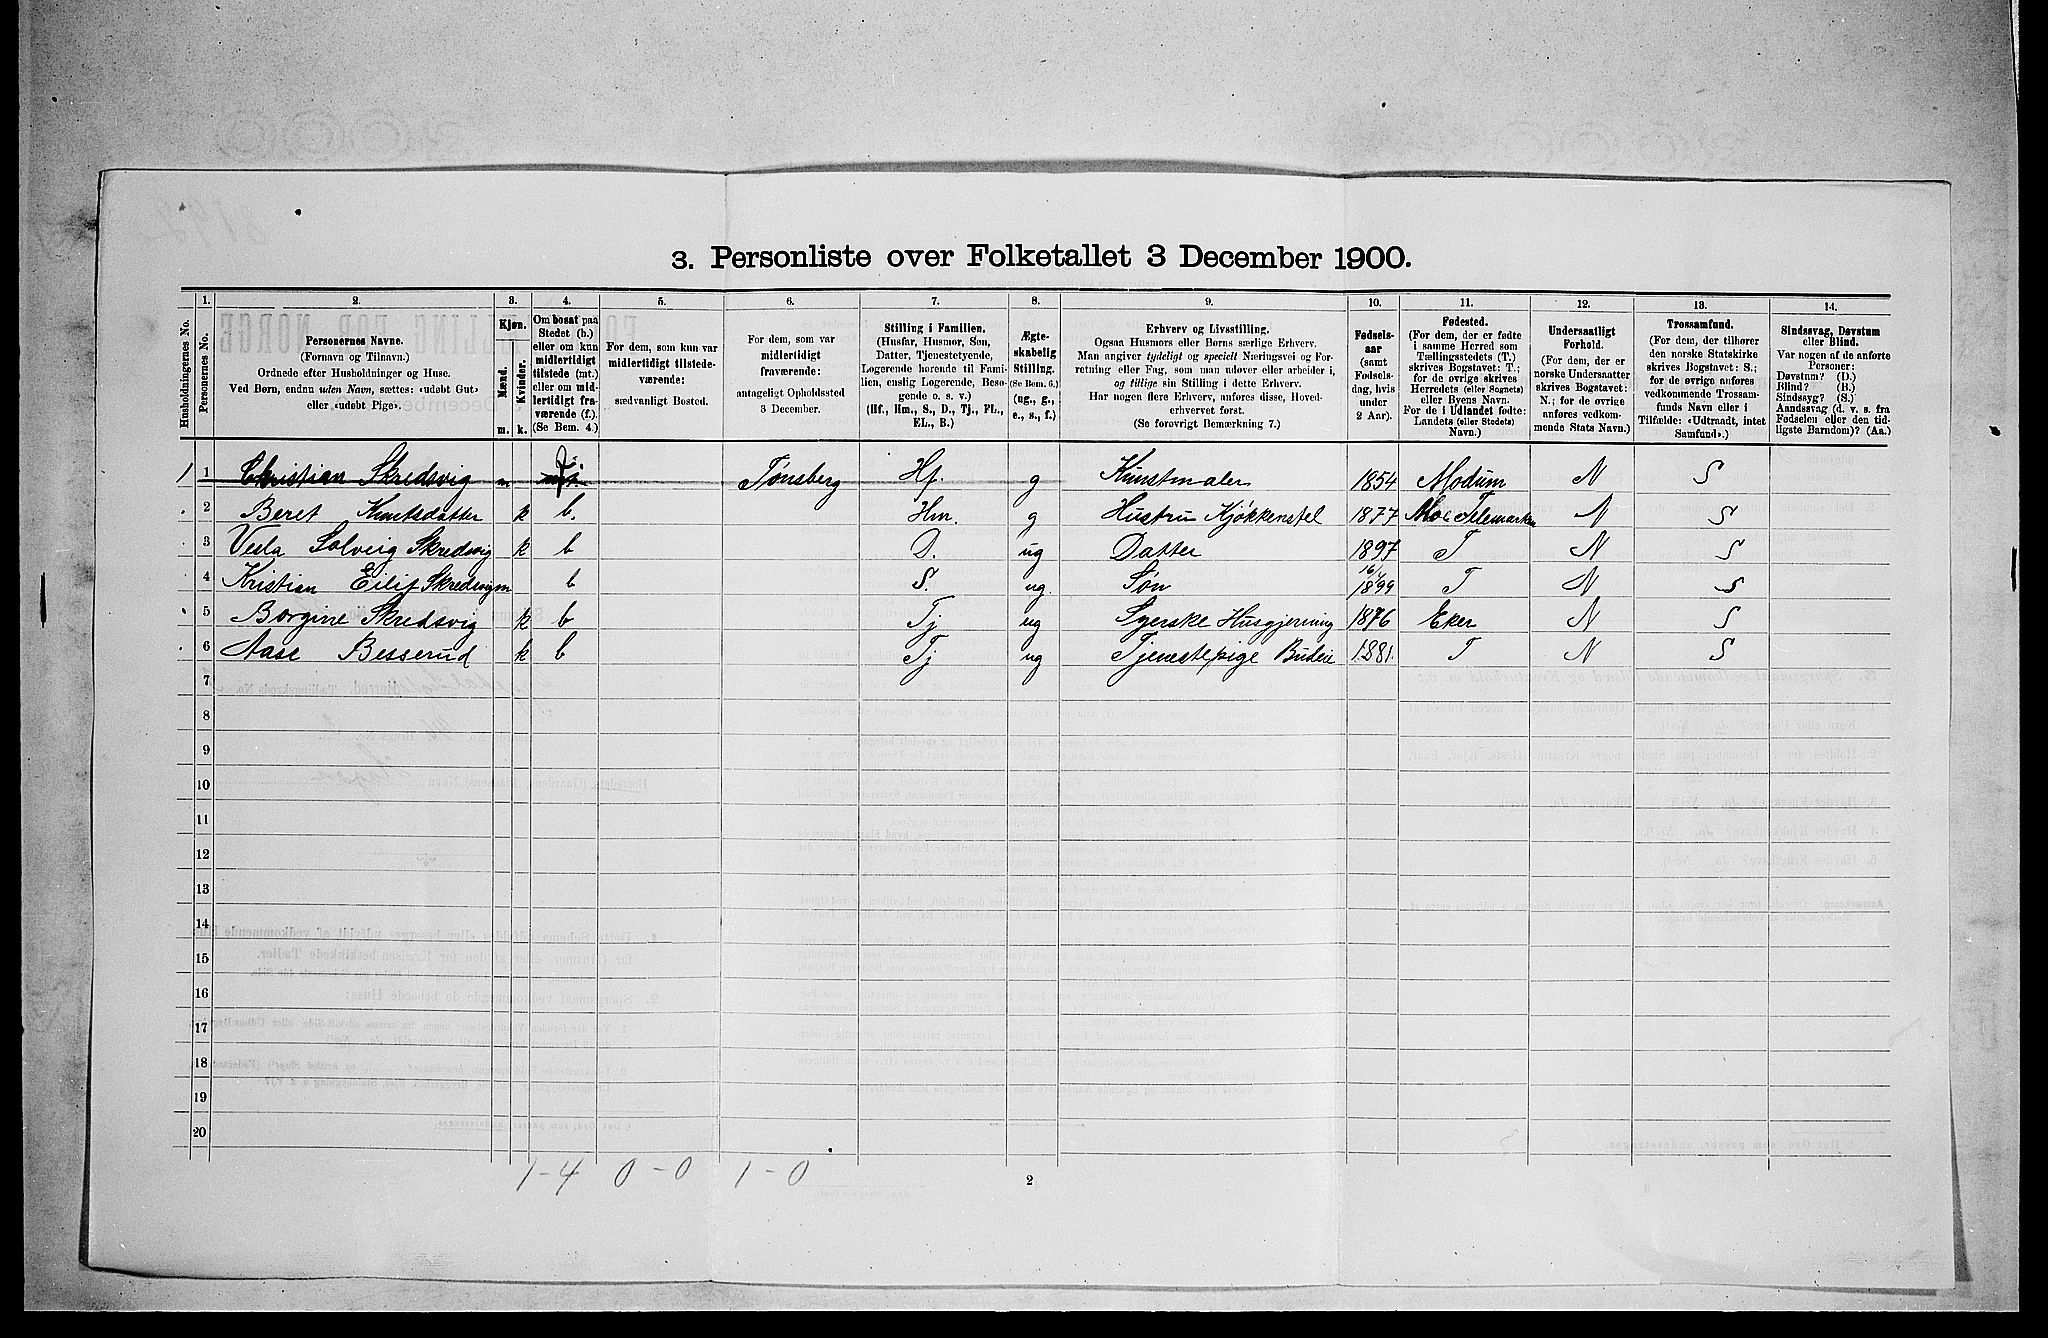 3. Personliste over Folketallet 3 December 1900.
Husholdningernes No.
1.
Personernes No.
2.
Personernes Navne.
(Fornavn og Tilnavn.)
Ordnede efter Husholdninger og Huse.
Ved Børn, endnu uden Navn, sættes: «udøbt Gut»
eller «udøbt Pige».
3.
Kjøn.
Mænd.
Kvinder.
m. k.
4.
Om bosat paa
Stedet (b.)
eller om kun
midlertidigt
tilstede (mt.)
eller om mid-
lertidigt fra-
værende (f.).
(Se Bem. 4.)
5.
For dem, som kun var
midlertidigt tilstede-
værende:
sædvanligt Bosted.
6.
For dem, som var
midlertidigt
fraværende:
antageligt Opholdssted
3 December.
7.
Stilling i Familien.
(Husfar, Husmor, Søn,
Datter, Tjenestetyende,
Logerende hørende til Fami-
lien, enslig Logerende, Besø-
gende o. s. v.)
(Hf., Hm., S., D., Tj., FL.,
EL., B.)
8.
Ægte-
skabelig
Stilling.
(Se Bem. 6.)
(ug., g.,
e., s., f.)
9.
Erhverv og Livsstilling.
Ogsaa Husmors eller Børns særlige Erhverv.
Man angiver tydeligt og specielt Næringsvei og For-
retning eller Fag, som man udøver eller arbeider i,
og tillige sin Stilling i dette Erhverv.
Har nogen flere Erhverv, anføres disse, Hoved-
erhvervet først.
(Se forøvrigt Bemærkning 7.)
10.
Fødsels-
aar
(samt
Fødsels-
dag, hvis
under
2 Aar).
11.
Fødested.
(For dem, der er fødte
i samme Herred som
Tællingsstedets (T.)
skrives Bogstavet: T.;
for de øvrige skrives
Herredets (eller Sognets)
eller Byens Navn.
For de i Udlandet fødte:
Landets (eller Stedets)
Navn.)
12.
Undersaatligt
Forhold.
(For dem, der er
norske Undersaatter
skrives Bogstavet:
N.; for de øvrige
anføres vedkom-
mende Stats Navn.)
13.
Trossamfund.
(For dem, der tilhører
den norske Statskirke
skrives Bogstavet: S.;
for de øvrige anføres
vedkommende Trossam-
funds Navn eller i
Tilfælde: «Udtraadt, intet
Samfund».)
14.
Sindssvag, Døvstum
eller Blind.
Var nogen af de anførte
Personer:
Døvstum? (D.)
Blind? (B.)
Sindssyg? (S.)
Aandssvag (d. v. s. fra
Fødselen eller den tid-
ligste Barndom)? (Aa.)
1 1 Christian Skredsvig m f. Tønsberg Hf. g Kunstmaler 1854 Modum N S
2 Beret Knutsdatter k b. Hm. g Hustru Kjøkkenstel 1877 Mo i Telemarken N S
3 Vesla Solveig Skredsvig k b D. ug Datter 1897 T N S
4 Kristian Eilif Skredsvig m b S. ug. Søn 16/4 1899 T N S
5 Borgine Skredsvig k b Tj ug Syerske Husgjerning 1876 Eker N S
6 Aase Besserud k b Tj ug Tjenestepige Budeie 1881. T N S
7
8
9
10
11
12
13
14
15
16
17
18
19
20
1-4 0-0 1-0
2